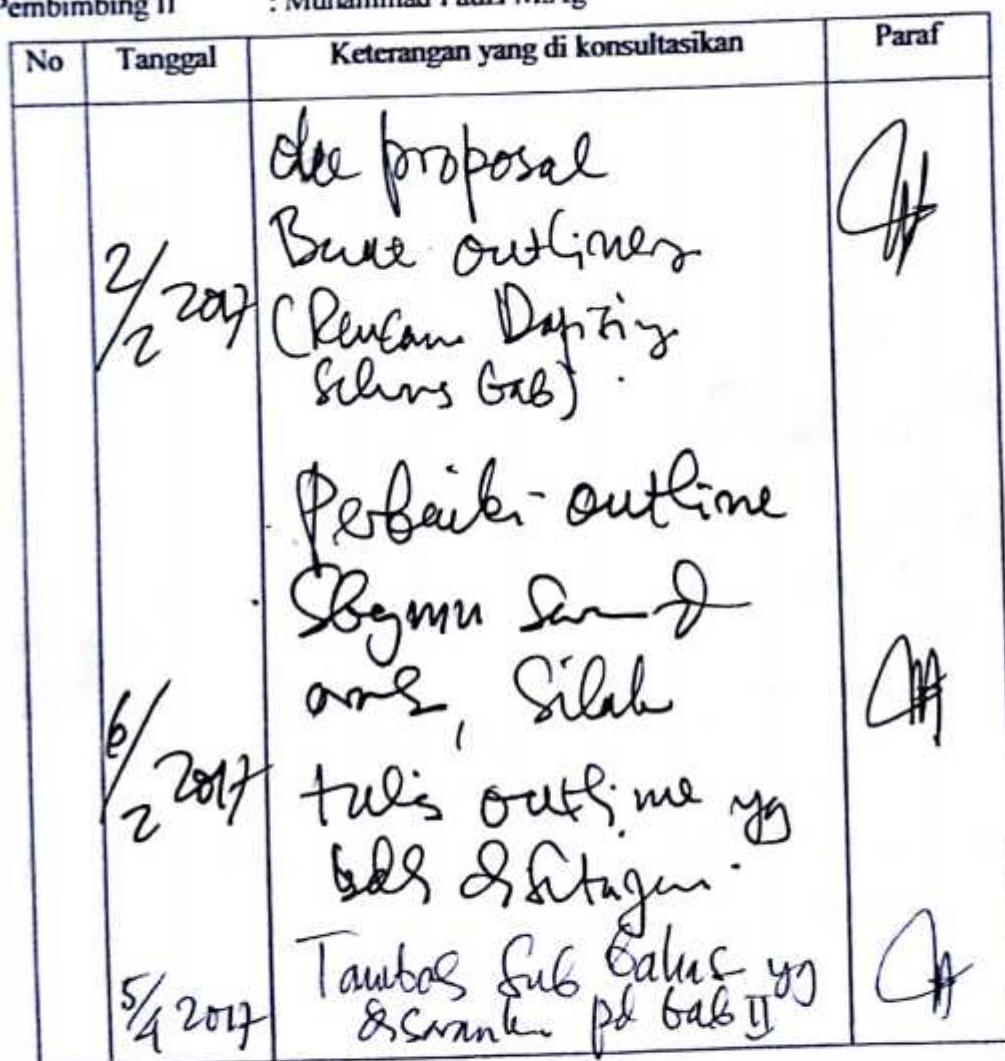 Pembimbing II : Muhammad Fauzi M.Ag
No Tanggal Keterangan yang di konsultasikan Paraf
2/2 2017
Acc proposal
Buat outline
(Rencana Daftar isi
bab)
6/2 2017
Perbaiki outline
Sbgmn saran
Silah
tulis outline yg
disetujui
5/4 2017
Tambah Sub bahas yg
disarankan pd bab II